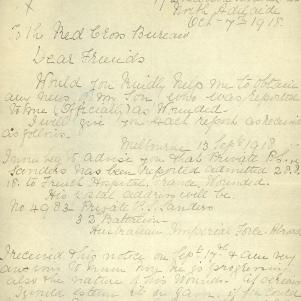 North Adelaide
Oct 7th 1918.
To the Red Cross Bureau
Dear Friends
Would you Kindly help me to obtain
any news of my Son, who was reported
to me (Officially) as Wounded.
I will give you each report as received
as follows.
Melbourne 13 Sept 1918
beg to advise you that Private P.S.
Sanders has been reported admitted 28.8.
18. to French Hospital, France, Wounded.
His postal address will be.
No 4983 Private P.S. Sanders
32 Battalion
Australian Imperial Force Abroad
I received this notice on Sept 17th & am very
anxious to know how he is progressing
also the nature of his Wounds.